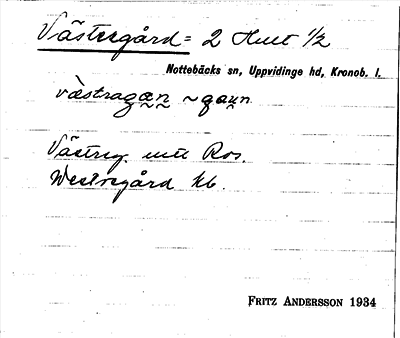 Västergård = 2 Hult 1/2
Nottebäcks sn, Uppvidinge hd, Kronob. l.
væstragæn ~ gaun
Västreg. mtl Ros.
Westregård kb.
FRITZ ANDERSSON 1934